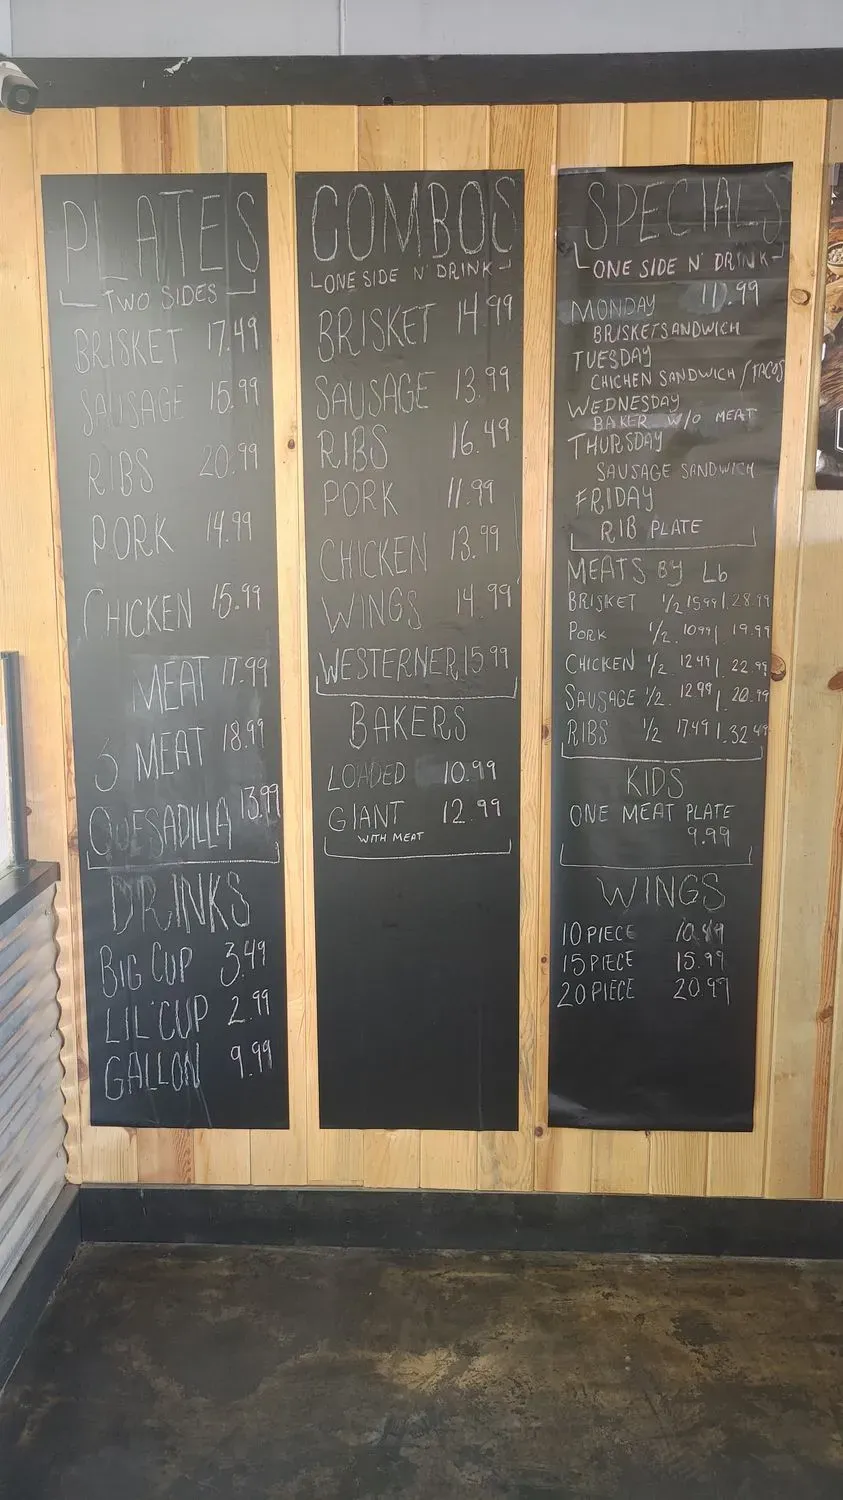 PLATES
TWO SIDES
BRISKET 17.49
SAUSAGE 15.99
RIBS 20.99
PORK 14.99
CHICKEN 15.99
MEAT 17.99
3 MEAT 18.99
QUESADILLA 13.99
DRINKS
BIG CUP 3.49
LIL'CUP 2.99
GALLON 9.99
COMBOS
ONE SIDE N' DRINK
BRISKET 14.99
SAUSAGE 13.99
RIBS 16.49
PORK 11.99
CHICKEN 13.99
WINGS 14.99
WESTERNER 15.99
BAKERS
LOADED 10.99
GIANT 12.99
WITH MEAT
SPECIALS
ONE SIDE N' DRINK
MONDAY 11.99
BRISKET SANDWICH
TUESDAY
CHICHEN SANDWICH / TACOS
WEDNESDAY
BAKER W/O MEAT
THURSDAY
SAUSAGE SANDWICH
FRIDAY
RIB PLATE
MEATS BY Lb
BRISKET 1/2 15.99 1. 28.99
PORK 1/2. 10.99 1. 19.99
CHICKEN 1/2. 12.49 1. 22.99
SAUSAGE 1/2. 12.99 1. 20.99
RIBS 1/2 17.49 1. 32.49
KIDS
ONE MEAT PLATE
9.99
WINGS
10 PIECE
15 PIECE 15.99
20 PIECE 20.99